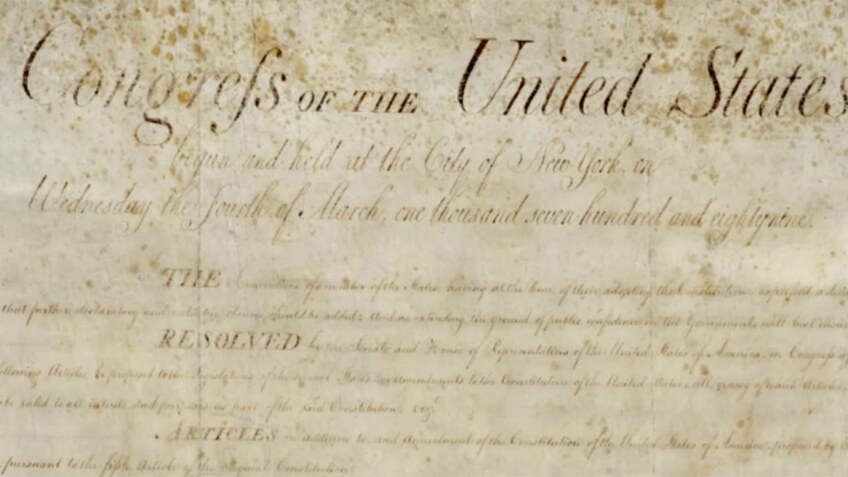 Congress OF THE United States
begun and held at the City of New York, on
Wednesday the fourth of March, one thousand seven hundred and eighty nine.
THE Conventions of a number of the States, having at the time of their adopting the Constitution, expressed a
that further declaratory and restrictive clauses should be added: And as extending the ground of public confidence in the Government, will best
RESOLVED by the Senate and House of Representatives of the United States of America, in Congress
following Articles be proposed to the Legislatures of the several States, as amendments to the Constitution of the United States, all, or any of which Articles,
to be valid to all intents and purposes, as part of the said Constitution; viz.
ARTICLES in addition to, and Amendment of the Constitution of the United States of America, proposed by
pursuant to the fifth Article of the original Constitution.